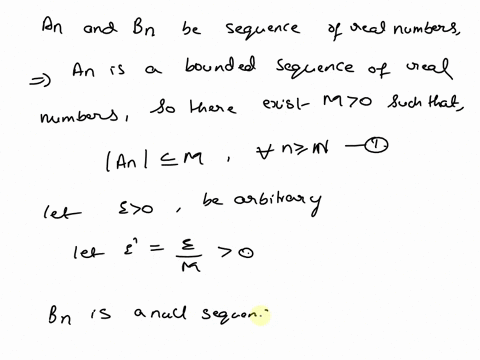 An and Bn be sequence of real numbers,
⇒ An is a bounded sequence of real
numbers, so there exist M>0 such that,
|An| ⊆ M, ∀ n ≥ N —①
let ε>0, be arbitrary
let ε' = ε/M > 0
Bn is a null sequen